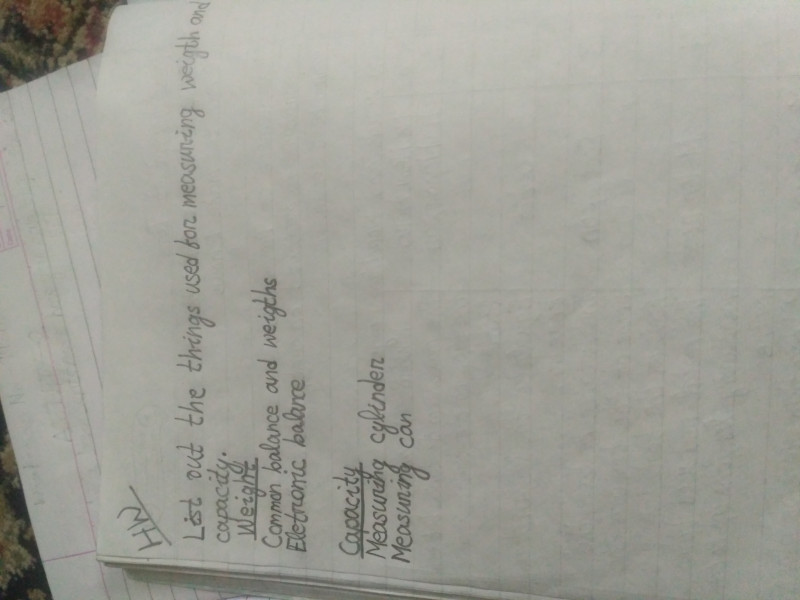 HW
List out the things used for measuring weigth and
capacity.
Weight
Common balance and weigths
Eletronic balance
Capacity
Measuring cylinder
Measuring can